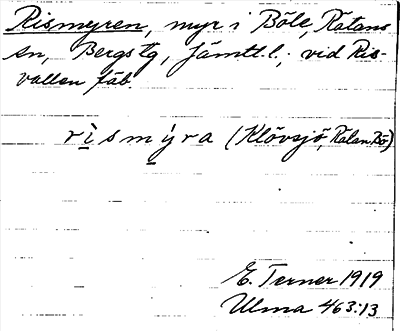 Rismyren, myr i Böle, Rätans
sn, Bergs tg, Jämtl. l.; vid Ris-
vallen fäb.
rismyra (Klövsjö, Rätan, Bö)
E. Terner 1919
Ulma 463:13